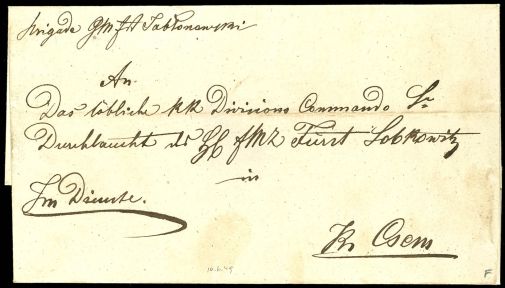 Brigade GM fst Jablonowski
An
Das löbliche kk Divisions Commando Sr
Durchlaucht des H fMz Fürst Lobkowitz
in
Im Dienste.
Kis Osem
10.6.49
F